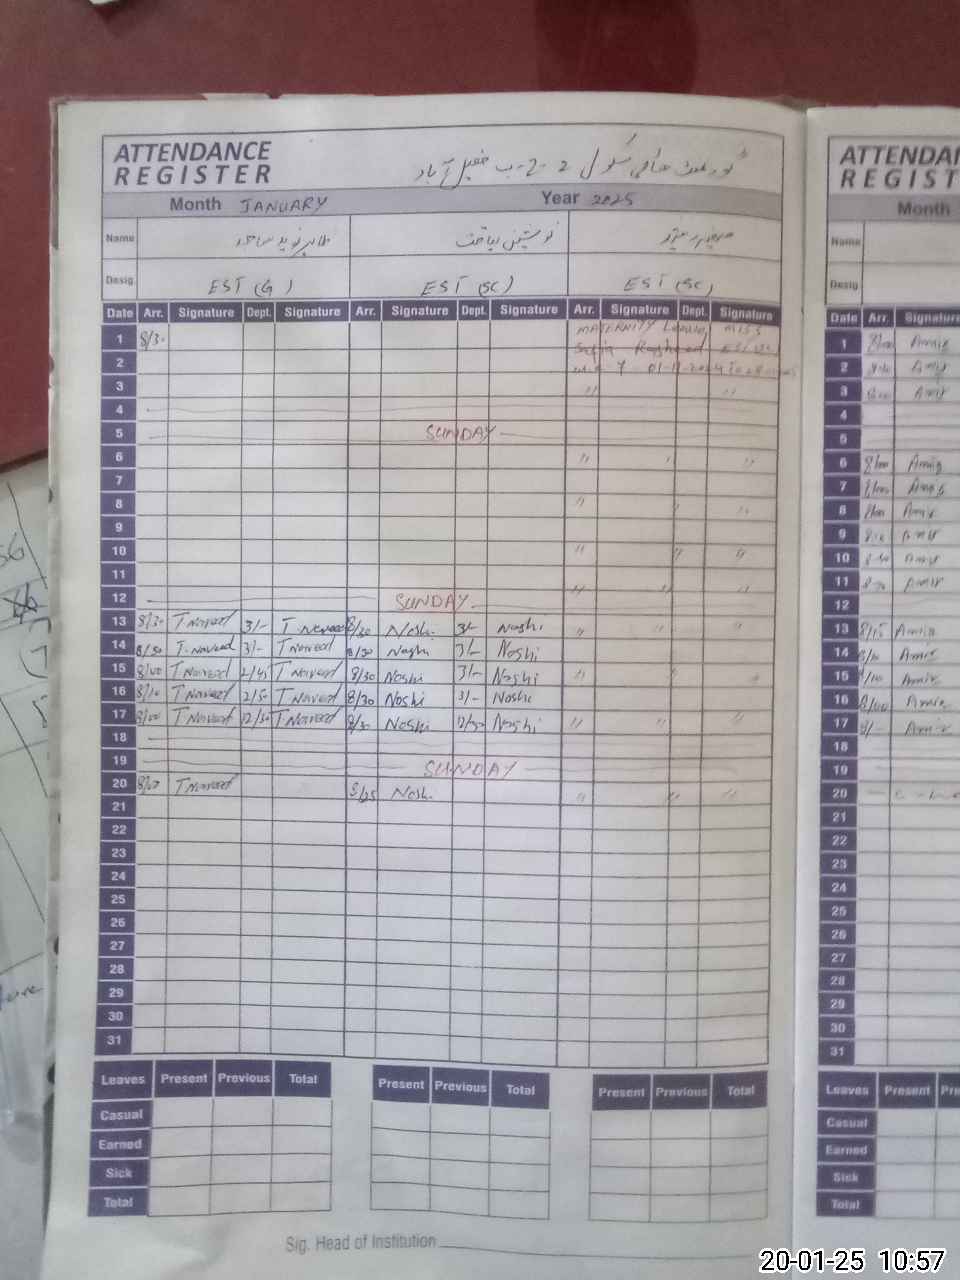 ATTENDANCE
REGISTER
Month JANUARY Year 2025
Name
Desig EST (G) EST (SC) EST (SC)
Date Arr. Signature Dept. Signature Arr. Signature Dept. Signature Arr. Signature Dept. Signature
1 8/30 MATERNITY MISS
2 Rasheed
3 〃 〃
4
5 SUNDAY
6 〃 〃 〃
7
8 〃 〃 〃
9
10 〃 〃 〃
11 〃 〃 〃
12 SUNDAY
13 8/30 T Naveed 3/- T Naveed 8/30 Noshi 3/- Noshi 〃 〃 〃
14 8/30 T. Naveed 3/- T Naveed 8/30 Noshi 3/- Noshi
15 8/00 T Naveed 2/45 T Naveed 8/30 Noshi 3/- Noshi 〃 〃 〃
16 8/10 T Naveed 2/50 T Naveed 8/30 Noshi 3/- Noshi
17 8/00 T Naveed 12/30 T Naveed 8/30 Noshi 12/30 Noshi 〃 〃 〃
18
19 SUNDAY
20 8/00 T Naveed 8/25 Noshi 〃 〃 〃
21
22
23
24
25
26
27
28
29
30
31
Leaves Present Previous Total Present Previous Total Present Previous Total
Casual
Earned
Sick
Total
Sig. Head of Institution
ATTENDA
REGIST
Month
Name
Desig
Date Arr. Signature
1 8/00 Amir
2 Amir
3 Amir
4
5
6 8/00 Amir
7 8/00 Amir
8 Amir
9 Amir
10 Amir
11 Amir
12
13 8/15 Amir
14 Amir
15 Amir
16 8/00 Amir
17 8/- Amir
18
19
20
21
22
23
24
25
26
27
28
29
30
31
Leaves Present Pre
Casual
Earned
Sick
Total
20-01-25 10:57